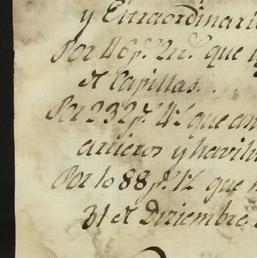 y Extraordinari
Por 46 p.s 2 r.s que
de Capillas..
Por 232 p.s 4 r.s que an
arrieros y havili
Por 1088 p.s 1 r.l que
31 de Diziembre.